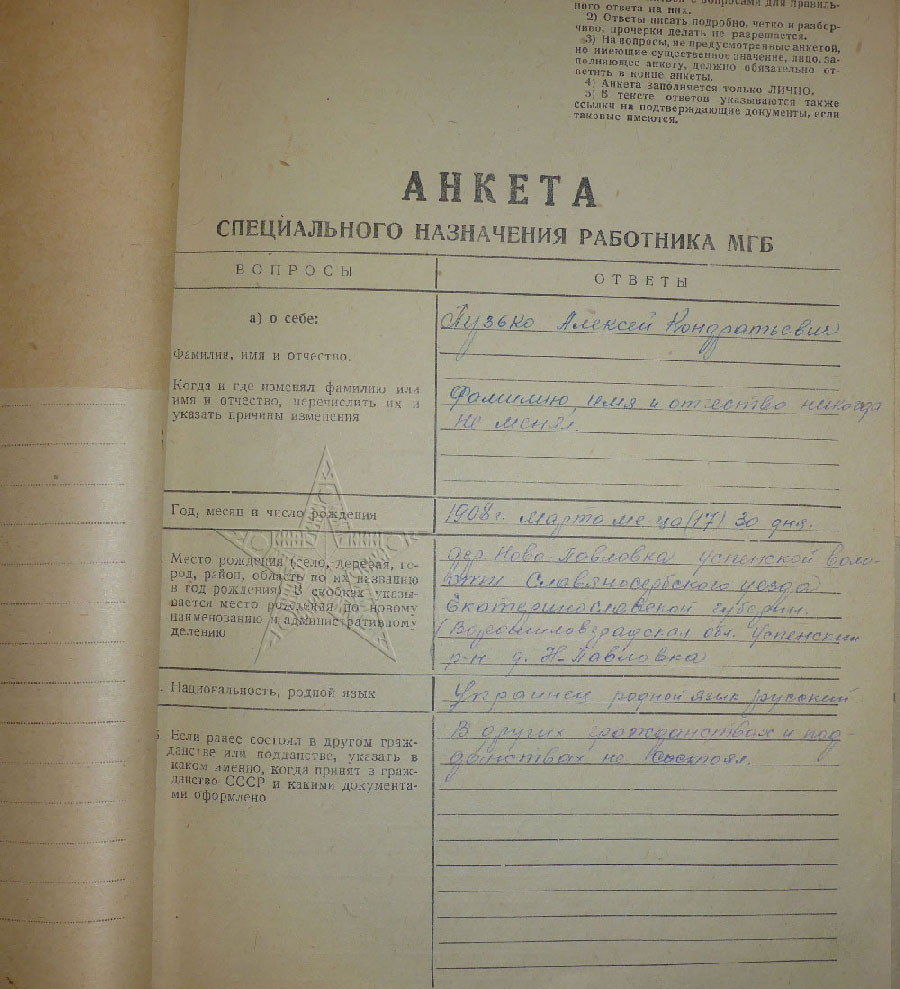 ного ответа на них.
2) Ответы писать подробно, четко и разбор-
чиво, прочерки делать не разрешается.
3) На вопросы, не предусмотренные анкетой,
но имеющие существенное значение, лицо, за-
полняющее анкету, должно обязательно от-
ветить в конце анкеты.
4) Анкета заполняется только ЛИЧНО.
5) В тексте ответов указываются также
ссылки на подтверждающие документы, если
таковые имеются.
АНКЕТА
СПЕЦИАЛЬНОГО НАЗНАЧЕНИЯ РАБОТНИКА МГБ
ВОПРОСЫ
ОТВЕТЫ
а) о себе:
Фамилия, имя и отчество.
Пузько Алексей Кондратьевич
Когда и где изменял фамилию или
имя и отчество, перечислить их и
указать причины изменения
Фамилию, имя и отчество никогда
не менял.
Год, месяц и число рождения
1908 г. марта м-ца (17) 30 дня.
Место рождения (село, деревня, го-
род, район, область по их названию
в год рождения). В скобках указы-
вается место рождения по новому
наименованию и административному
делению
дер. Ново Павловка Успенской воло-
сти Славяносербского уезда
Екатеринославской губернии.
(Ворошиловградская обл. Успенский
р-н д. Н-Павловка
Национальность, родной язык
Украинец родной язык русский
Если ранее состоял в другом граж-
данстве или подданстве, указать в
каком именно, когда принят в граж-
данство СССР и какими документа-
ми оформлено
В других гражданствах и под-
данствах не состоял.